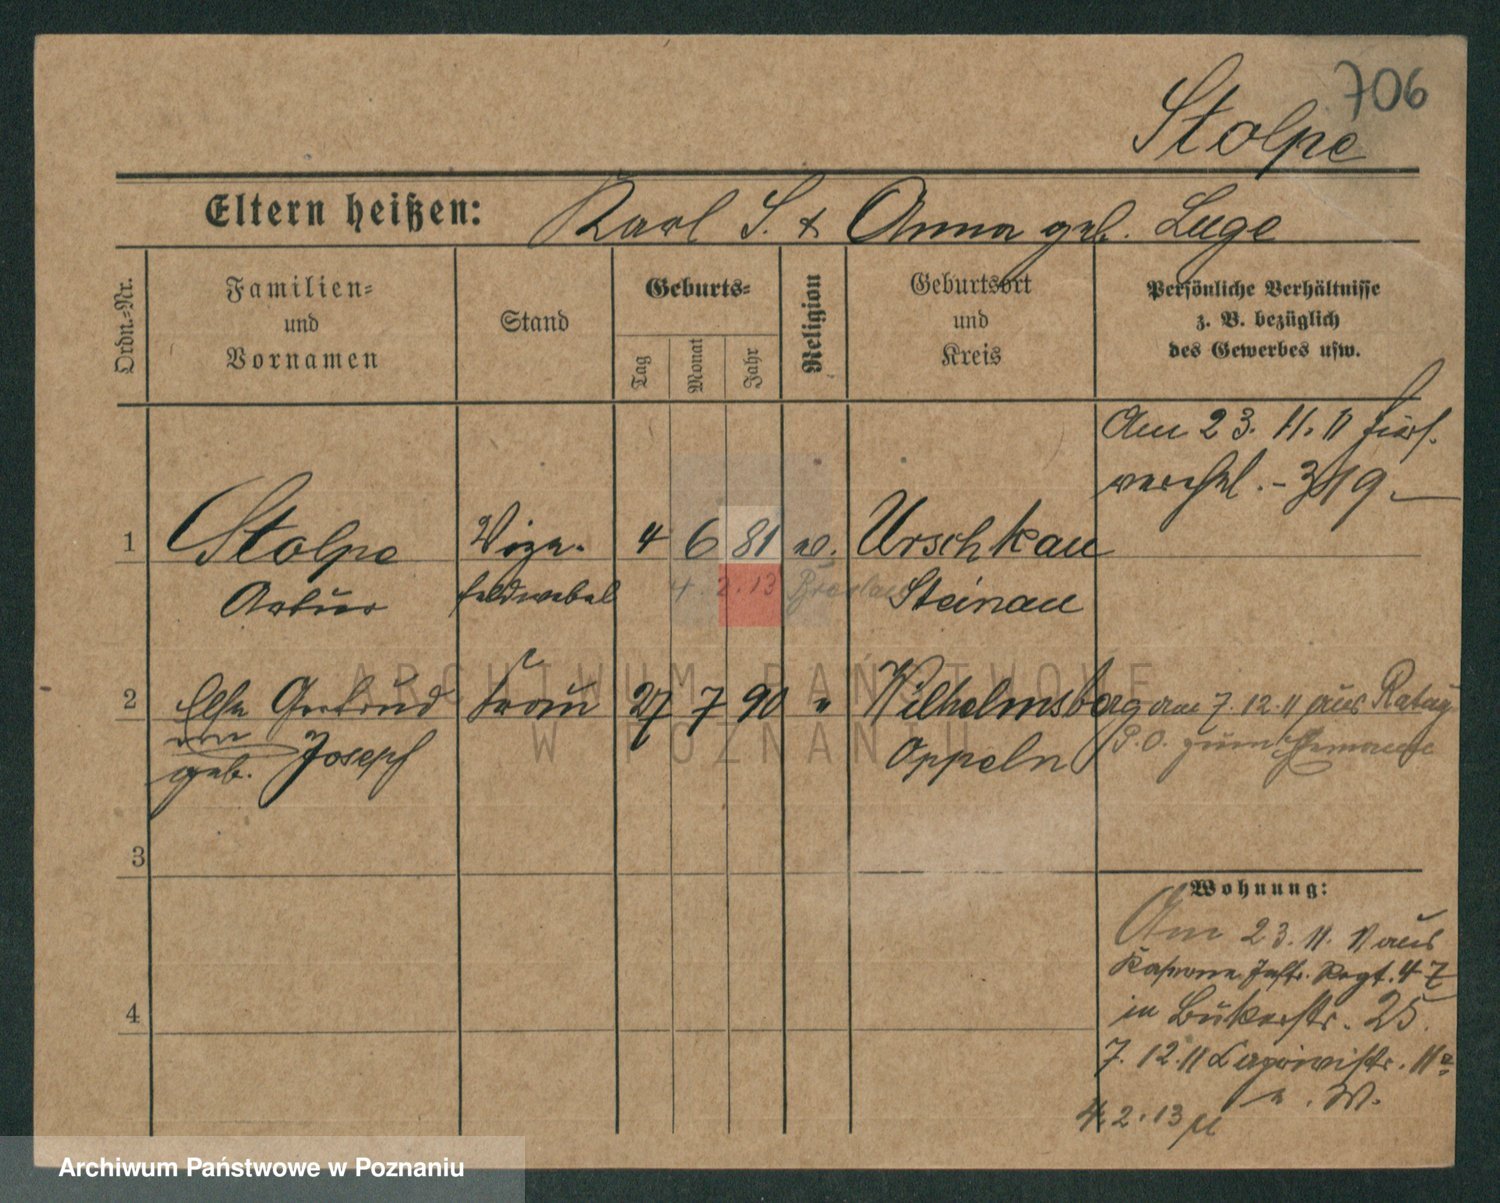 706
Stolpe
Eltern heißen: Karl S. & Anna geb. Luge
Ordn.-Nr.
Familien- und Vornamen
Stand
Geburts-
Tag
Monat
Jahr
Religion
Geburtsort und Kreis
Persönliche Verhältnisse z. B. bezüglich des Gewerbes usw.
Am 23. 11. 11
verehel. -
1 Stolpe Vize- 4 6 81 Urschkau
Artur feldwebel Steinau
4. 2. 13 Breslau
2 Else Gertrud Frau 27 7 90 " Wilhelmsberg
geb. Josepf Oppeln
am 7. 12. 11 aus Ratay
P. O. zum Ehemanne
3
4
Wohnung:
Am 23. 11. 11 aus
Kaserne Inftr. Regt. 47
in Bukerstr. 25.
7. 12. 11 11
4. 2. 13
ARCHIWUM PAŃSTWOWE
W POZNANIU
Archiwum Państwowe w Poznaniu